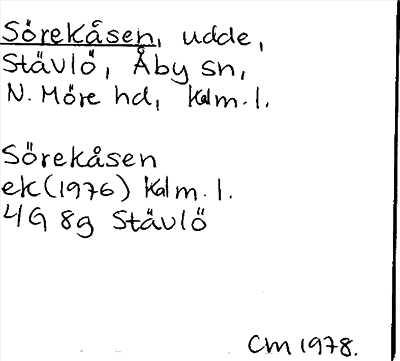 Sörekåsen, udde,
Stävlö, Åby sn,
N. Möre hd, Kalm. l.
Sörekåsen
ek (1976) Kalm. l.
4G 8g Stävlö
CM 1978.